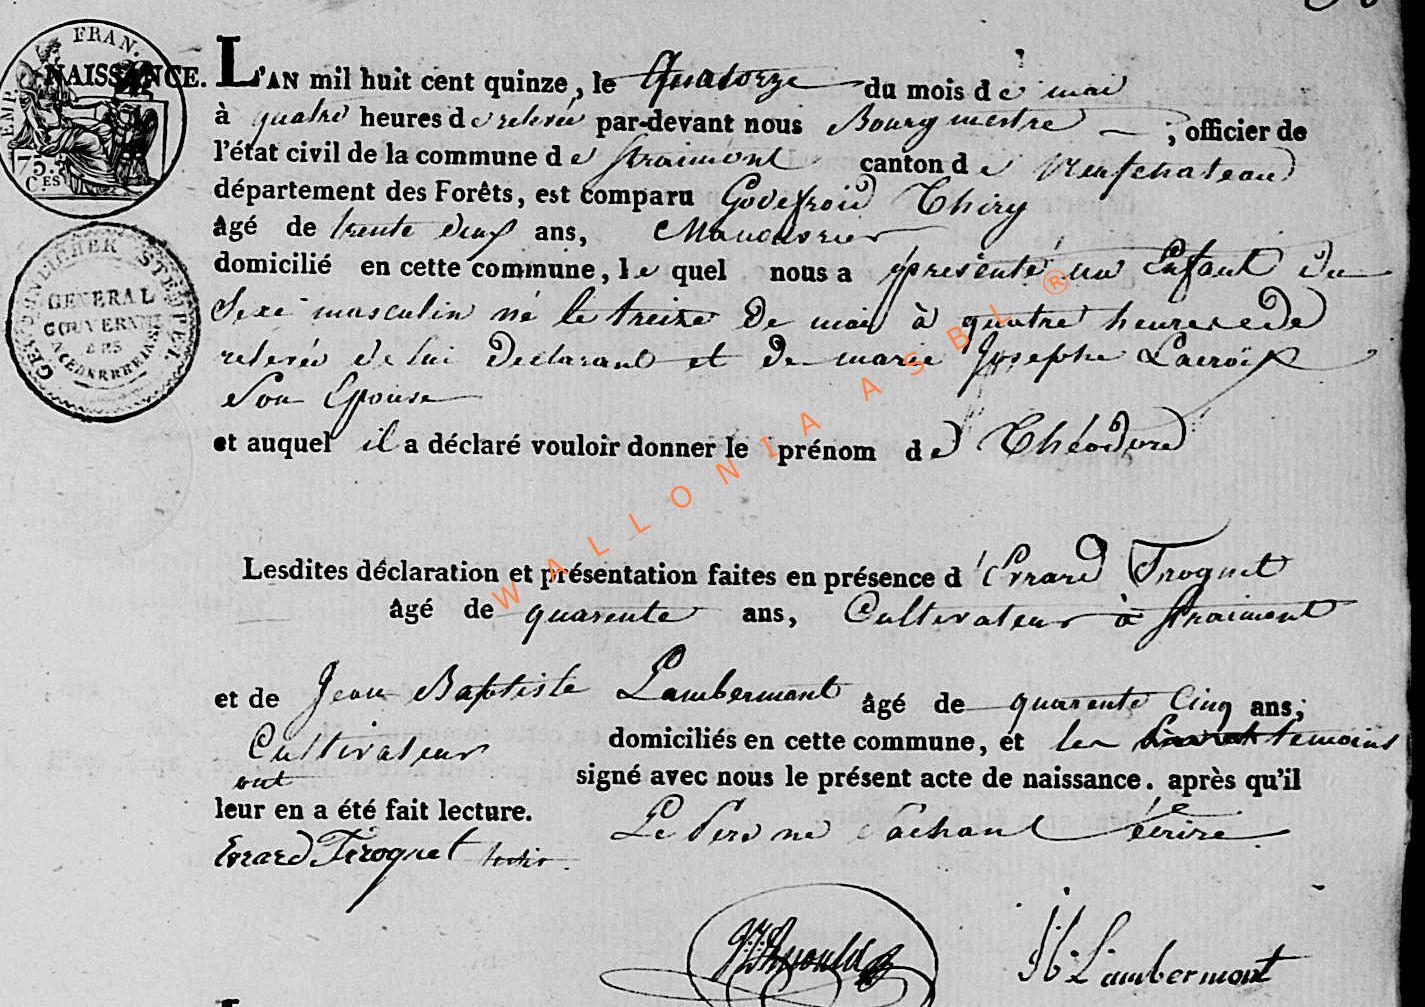 FRAN.
EMP.
75.
CES
GENERAL
GOUVERNEM
STEMPEL
NAISSANCE. L'AN mil huit cent quinze, le quatorze du mois de mai
à quatre heures de relevée par-devant nous Bourgmestre, officier de
l'état civil de la commune de Straimont canton de Neufchateau
département des Forêts, est comparu Godefroid Thiry
âgé de trente deux ans, Manouvrier
domicilié en cette commune, le quel nous a présenté un Enfant du
Sexe masculin né le treize de mai à quatre heures de
relevée de lui declarant et de marie Josephe Lacroix
Son Epouse
et auquel il a déclaré vouloir donner le prénom de Théodore
WALLONIA ASBL ®
Lesdites déclaration et présentation faites en présence d'Errard Froquet
âgé de quarente ans, Cultivateur à Straimont
et de Jean Baptiste Lambermont âgé de quarente Cinq ans,
Cultivateur domiciliés en cette commune, et les temoins
ont signé avec nous le présent acte de naissance. après qu'il
leur en a été fait lecture. Le Pere ne sachant écrire
Errard Froquet
Lambermont